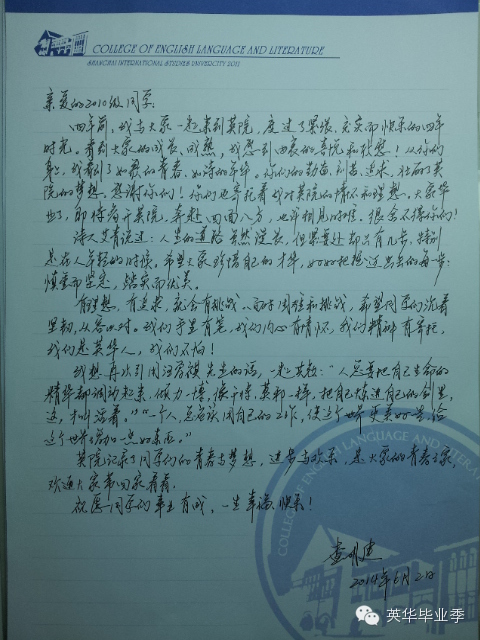 COLLEGE OF ENGLISH LANGUAGE AND LITERATURE
SHANGHAI INTERNATIONAL STUDIES UNIVERSITY 2011
亲爱的2010级同学:
四年前,我与大家一起来到英院,度过了紧张、充实而快乐的四年
时光。看到大家的成长、成熟,我感到由衷的喜悦和欣慰!从你们
身上,我看到了如歌的青春、如诗的年华。你们的勤奋、刻苦、追求,
院的梦想。感谢你们!你们也寄托着我对英院的情怀和理想。大家毕
业了,即将离开英院,奔赴四面八方,也许相见时难,很舍不得你们!
诗人艾青说过:人生的道路虽然漫长,但紧要处却只有几步,特别
是在人年轻的时候。希望大家珍惜自己的才华,好好把握迈出去的每一步:
慎重而坚定,踏实而优美。
有理想,有追求,就会有挑战。面对困难和挑战,希望同学们沉着
坚韧,从容应对。我们手里有笔,我们内心有情怀,我们精神有寄托,
我们是英华人,我们不怕!
我想再次引用汪曾祺先生的话,一起共勉:“人总要把自己生命的
精华都调动起来,倾力一搏,像干将、莫邪一样,把自己炼进自己的剑里,
这,才叫活着。”“一个人,总应该用自己的工作,使这个世界更美好一些,给
这个世界增加一点好东西。”
英院记录了同学们的青春与梦想,进步与欢乐,是大家的青春之家,
欢迎大家常回家看看。
祝愿同学们事业有成,一生幸福快乐!
查明建
2014年6月2日
COLLEGE OF ENGLISH LANGUAGE AND LITERATURE
英华毕业季